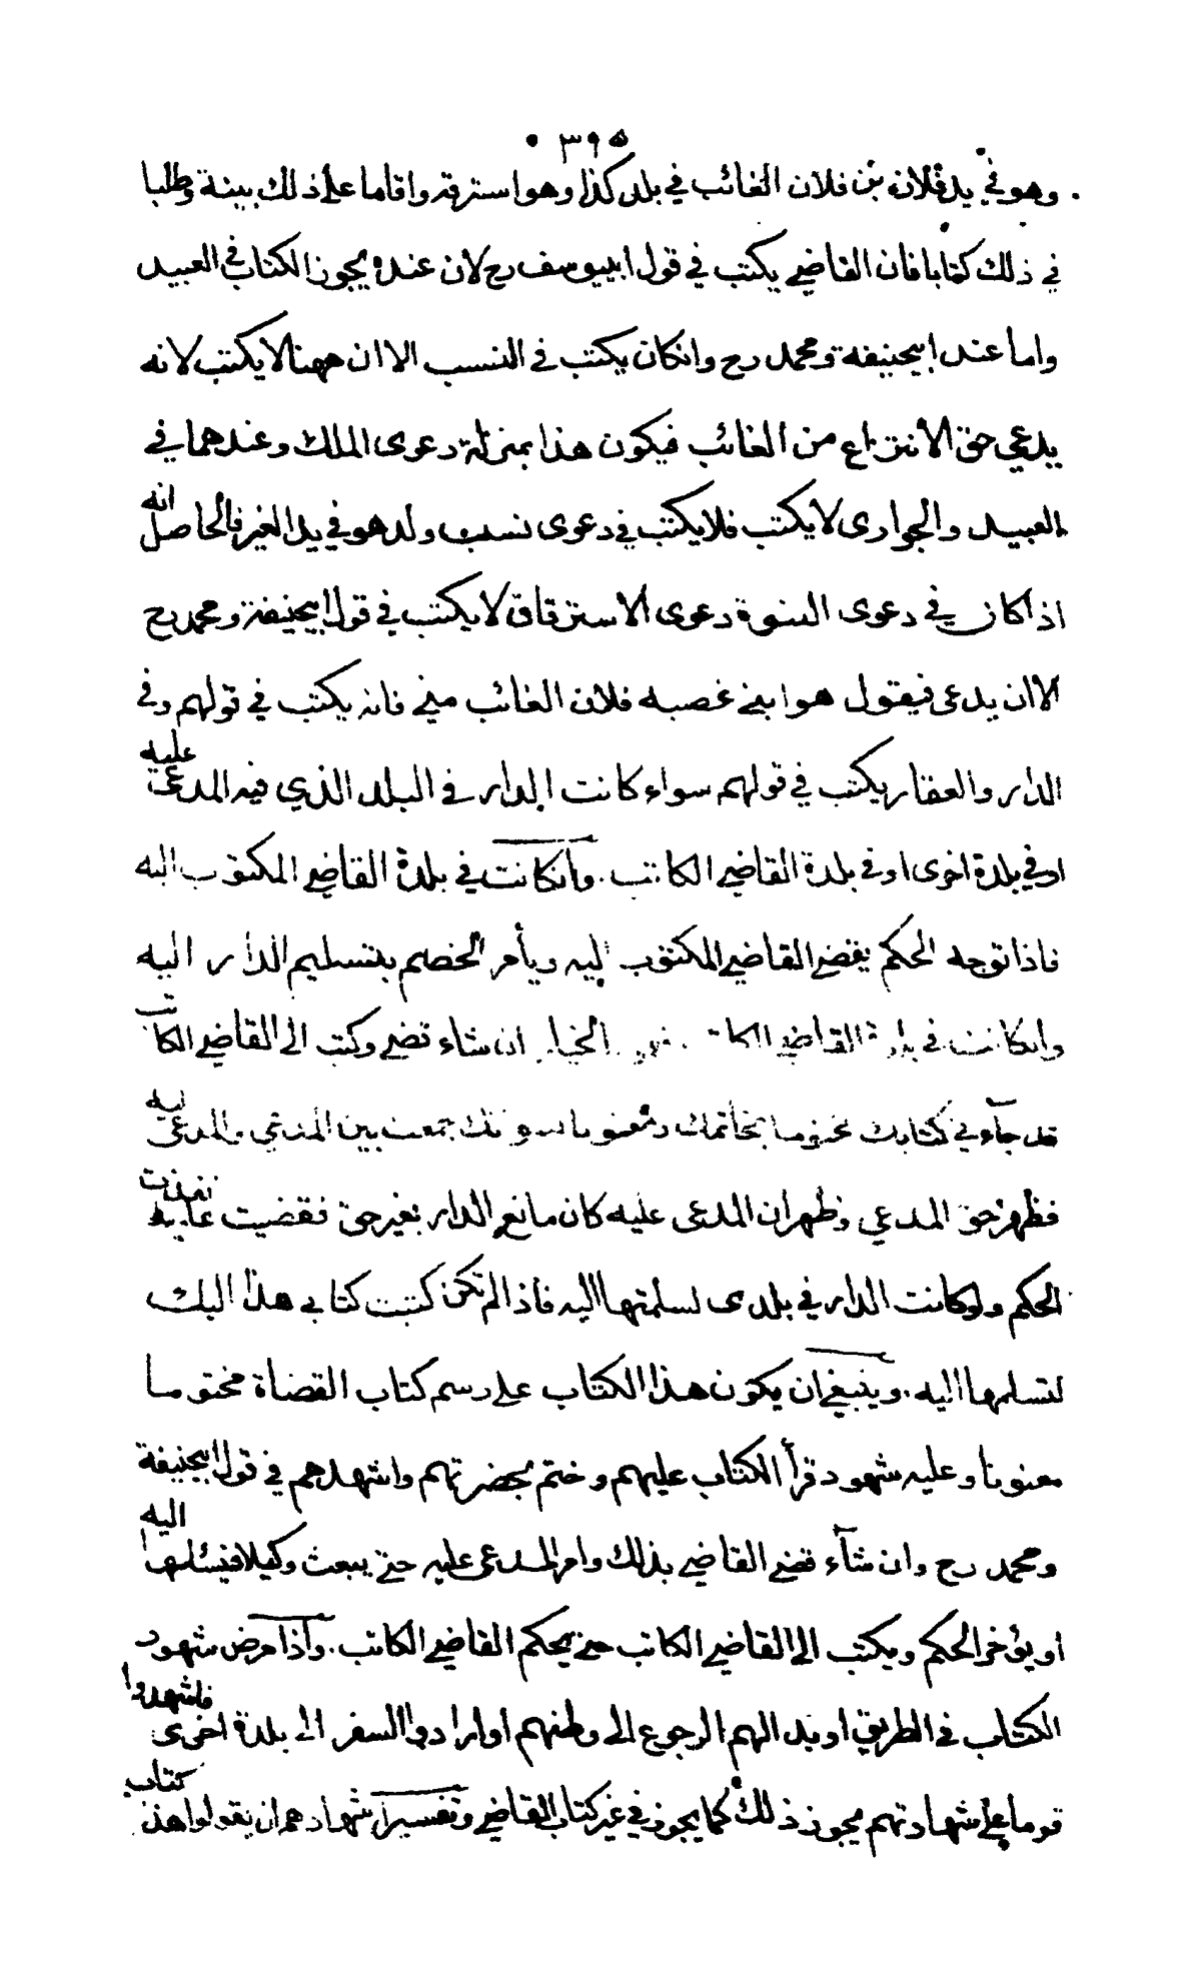 ٣٩٥
وهو في يد فلان بن فلان الغائب في بلد كذا وهو استرقه واقاما على ذلك بينة وطلبا
في ذلك كتابا فان القاضي يكتب في قول ابييوسف رح لان عنده يجوز الكتاب في العبيد
واما عند ابيحنيفة ومحمد رح وانكان يكتب في النسب الا ان ههنا لا يكتب لانه
يدعي حق الانتزاع من الغائب فيكون هذا بمنزلة دعوى الملك وعندهما في
العبيد والجوارى لا يكتب فلا يكتب في دعوى نسب ولد هو في يد الغير فالحاصل انه
اذا كان في دعوى البنوة دعوى الاسترقاق لا يكتب في قول ابيحنيفة ومحمد رح
الا ان يدعى فيقول هو ابني غصبه فلان الغائب مني فانه يكتب في قولهم وفي
الدار والعقار يكتب في قولهم سواء كانت الدار في البلد الذي فيه المدعى عليه
او في بلدة اخرى او في بلدة القاضي الكاتب. وانكانت في بلدة القاضي المكتوب اليه
فاذا توجه الحكم يقضي القاضي المكتوب إليه ويأمر الخصم بتسليم الدار اليه
وانكانت في بلدة القاضي الكاتب فهو بالخيار ان شاء قضى وكتب الى القاضي الكاتب
قد جآءني كتابك مختوما بخاتمك ومعنونا بعنوانك جمعت بين المدعي والمدعى عليه
فظهر حق المدعي وظهر ان المدعى عليه كان مانع الدار بغير حق فقضيت عليه نفذت
الحكم ولو كانت الدار في بلدى لسلمتها اليه فاذا لم تكن كتبت كتابي هذا اليك
لتسلمها اليه. وينبغي ان يكون هذا الكتاب على رسم كتاب القضاة مختوما
معنونا وعليه شهود قرأ الكتاب عليهم وختم بحضرتهم واشهدهم في قول ابيحنيفة
ومحمد رح وان شآء قضى القاضي بذلك وامر المدعى عليه حتى يبعث وكيلا فيسلمها اليه
او يؤخر الحكم ويكتب الى القاضي الكاتب حتى يحكم القاضي الكاتب. واذا مرض شهود
الكتاب في الطريق او بدا لهم الرجوع الى وطنهم او ارادوا السفر الى بلدة اخرى فاشهدوا
قوما على شهادتهم يجوز ذلك كما يجوز في غير كتاب القاضي وتفسير اشهادهم ان يقولوا هذا كتاب